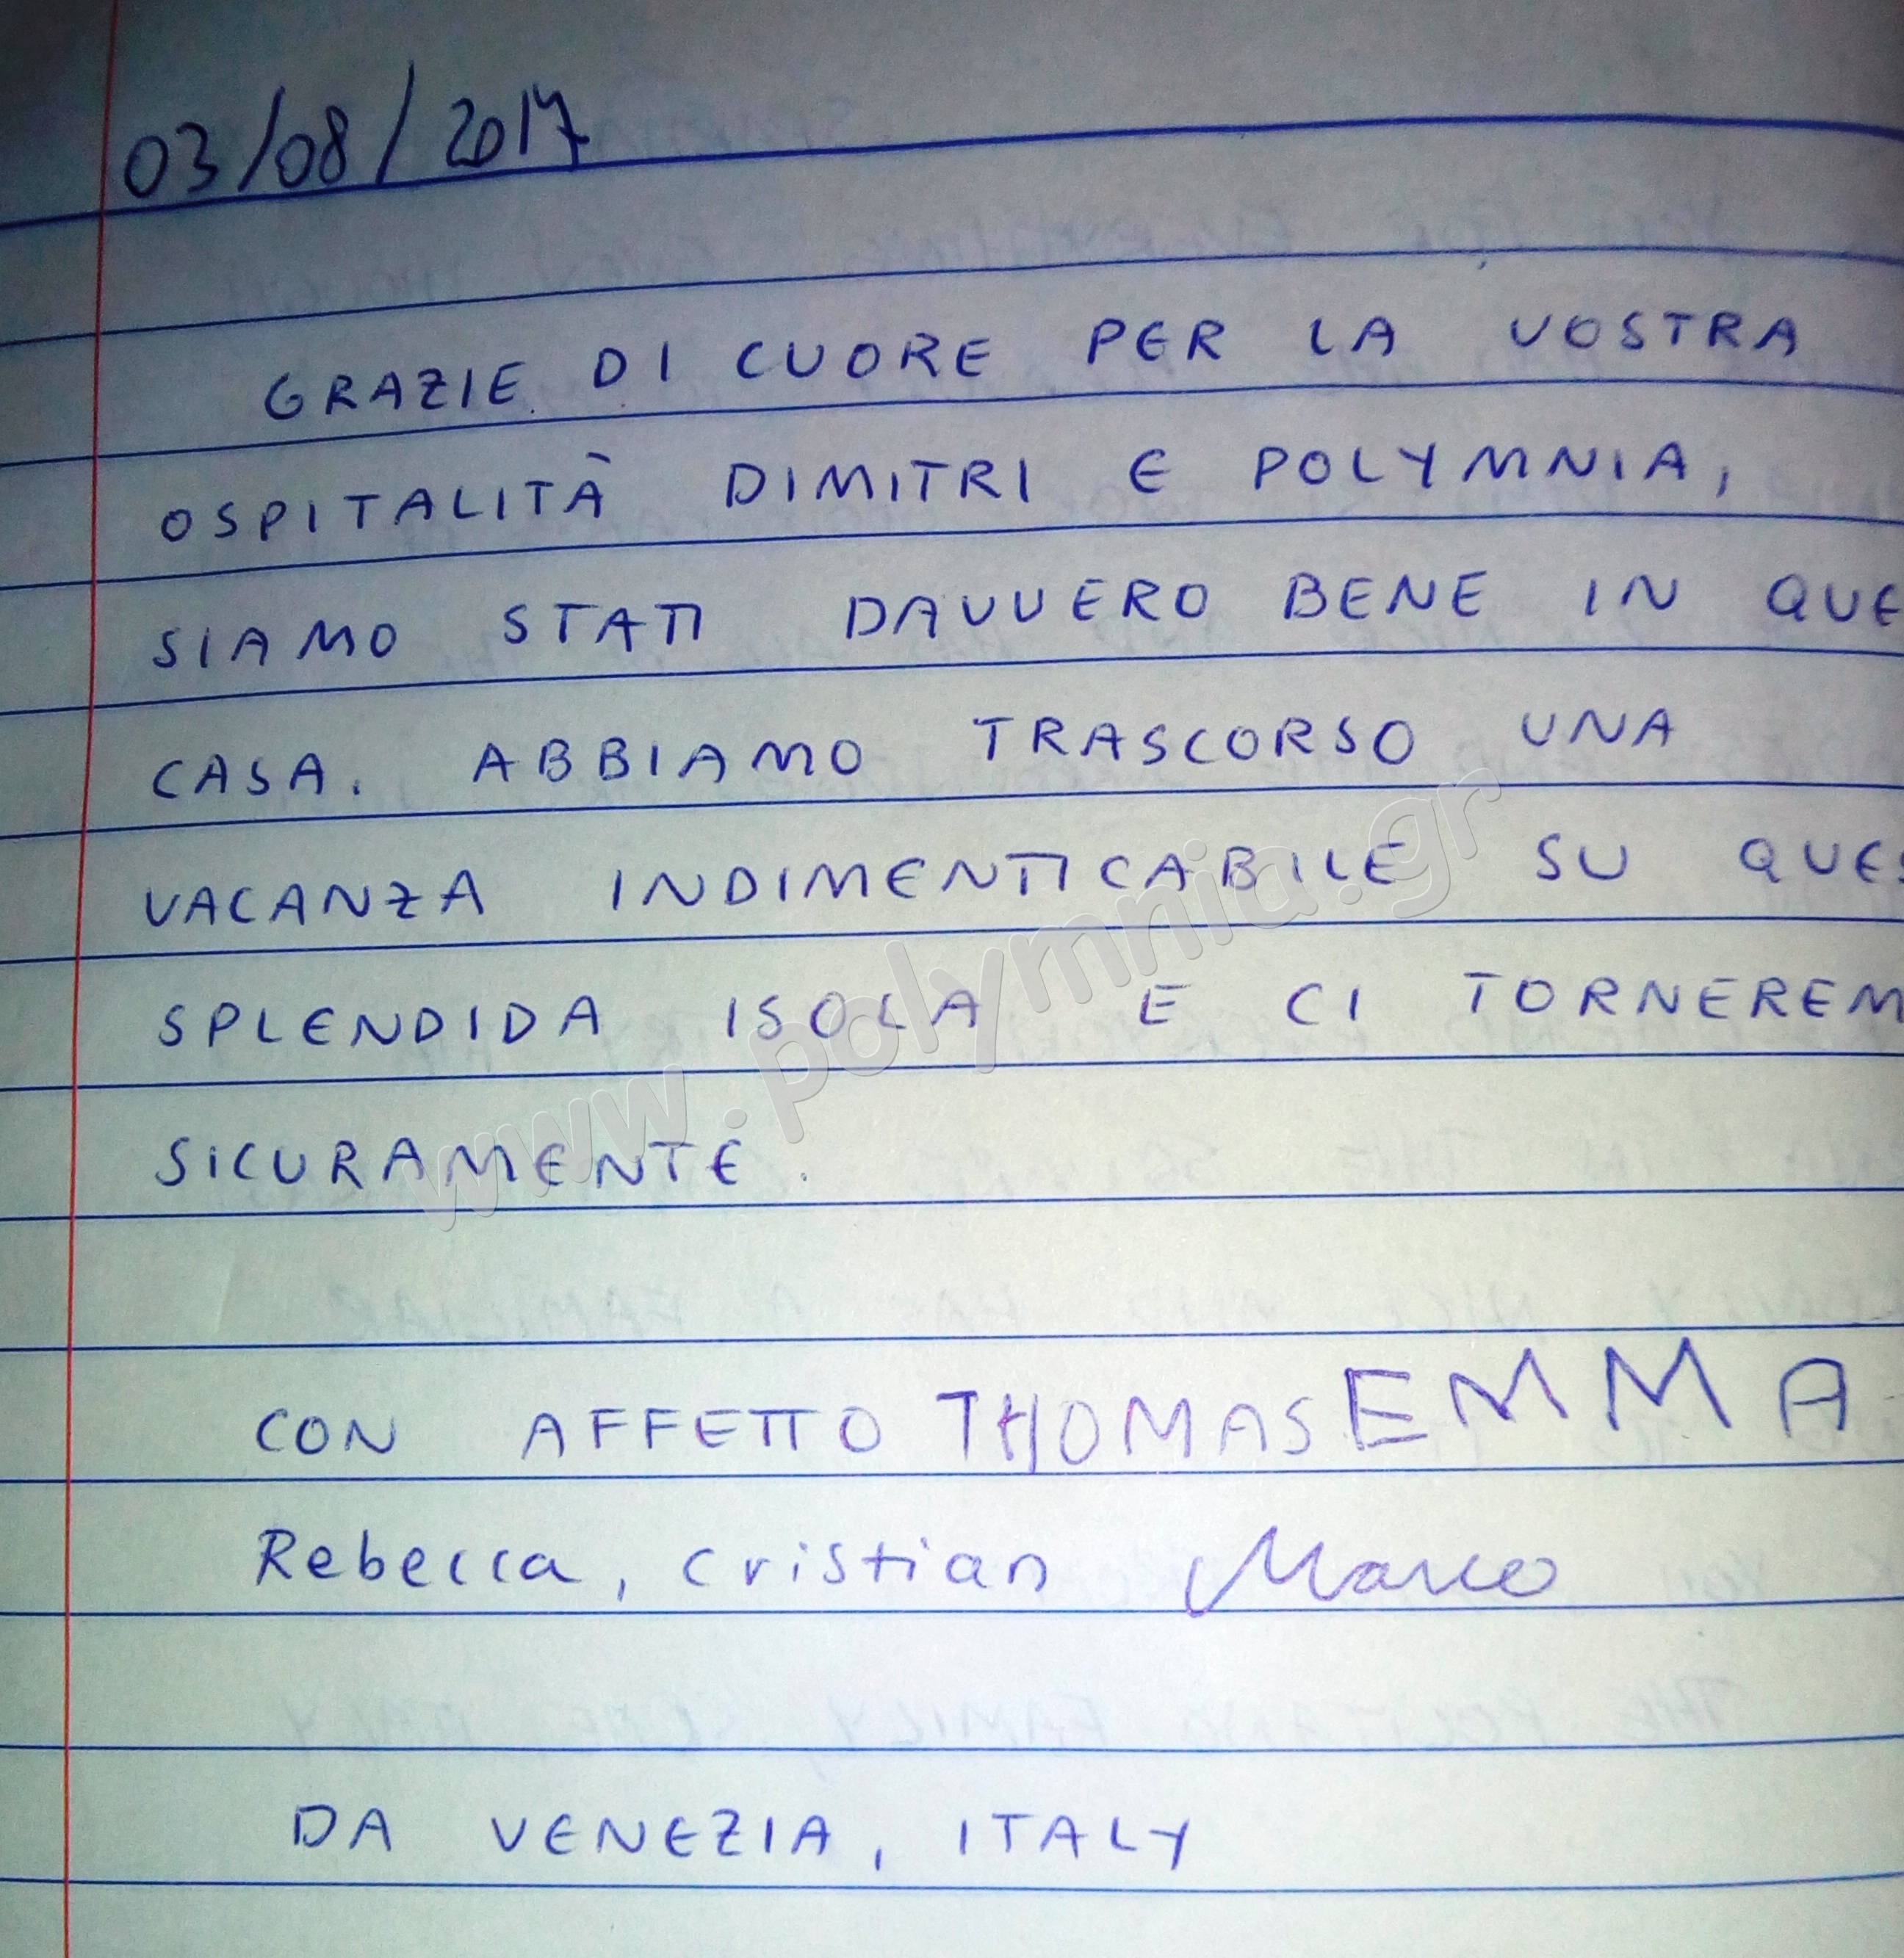 03/08/2017
GRAZIE DI CUORE PER LA VOSTRA
OSPITALITÀ DIMITRI E POLYMNIA,
SIAMO STATI DAVVERO BENE IN QUE
CASA. ABBIAMO TRASCORSO UNA
VACANZA INDIMENTICABILE SU QUES
SPLENDIDA ISOLA E CI TORNEREM
SICURAMENTE.
www.polymnia.gr
CON AFFETTO THOMAS EMMA
Rebecca, cristian Marco
DA VENEZIA, ITALY